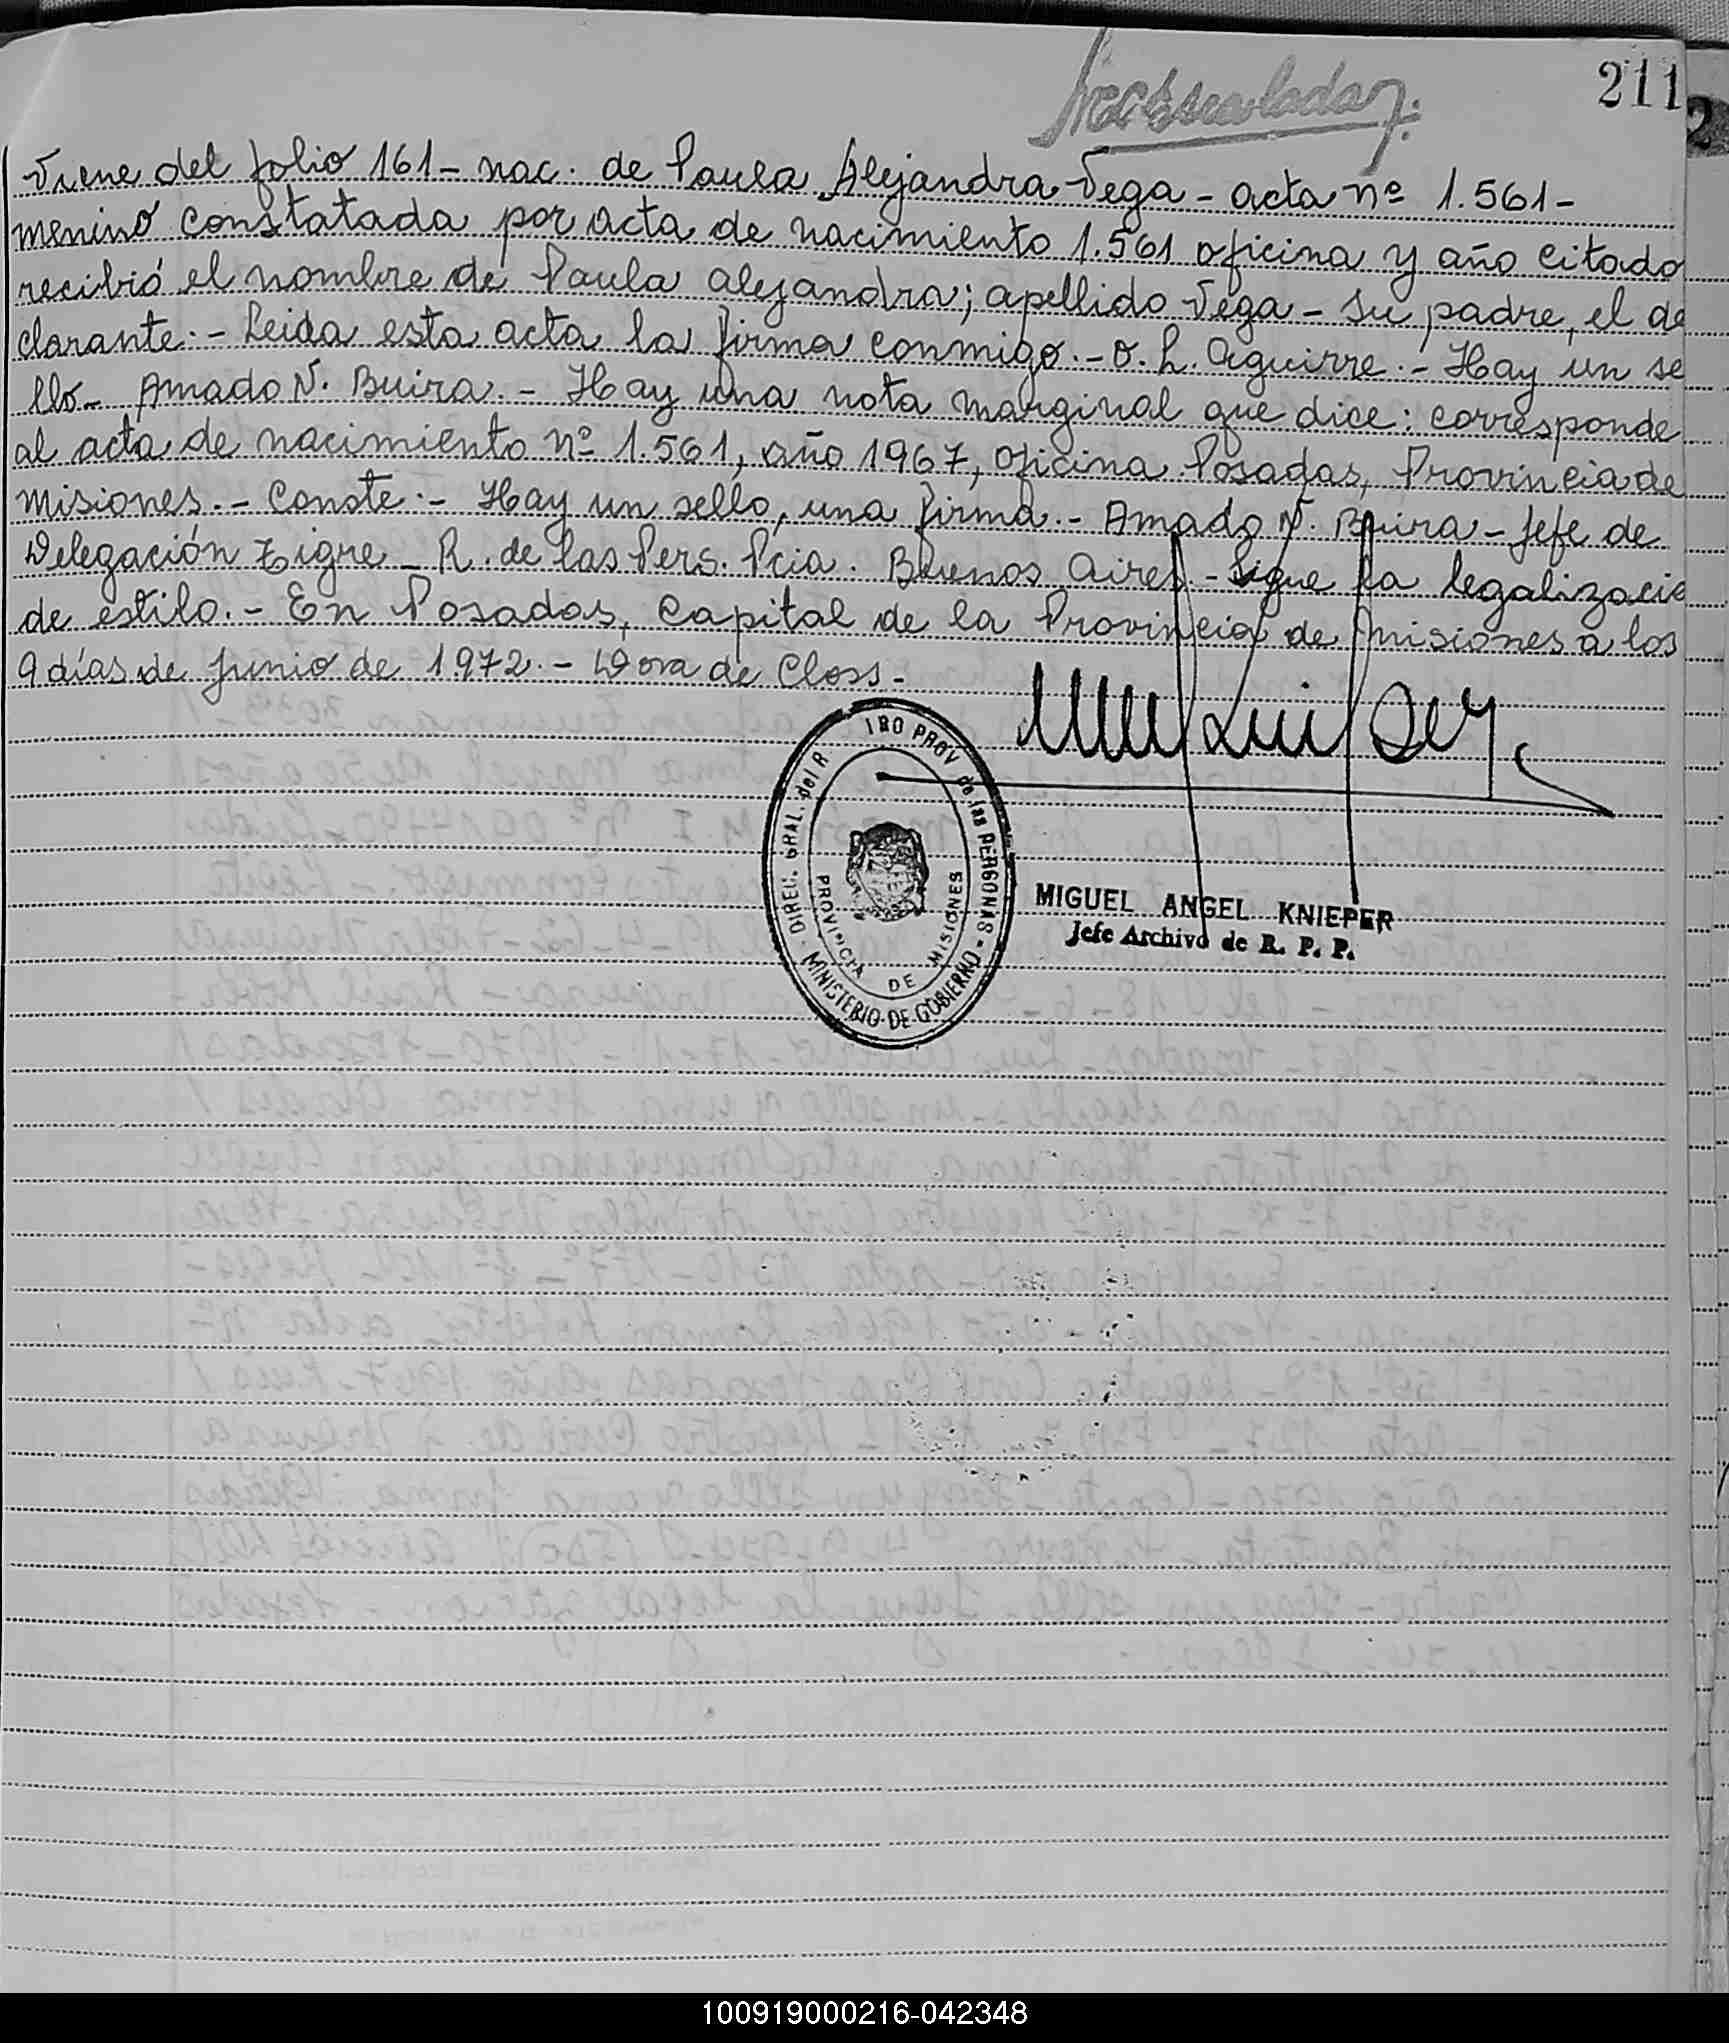 211
Viene del folio 161 - nac. de Paula Alejandra Vega - acta nº 1.561 -
menino constatada por acta de nacimiento 1.561 oficina y año citado
recibió el nombre de Paula Alejandra; apellido Vega - Su padre, el de
clarante. - Leida esta acta la firma conmigo. - O. L. Aguirre. - Hay un se
llo - Amado N. Buira. - Hay una nota marginal que dice: corresponde
al acta de nacimiento nº 1.561, año 1967, oficina Posadas, Provincia de
Misiones. - Conste. - Hay un sello, una firma. - Amado N. Buira - Jefe de
Delegación Tigre - R. de las Pers. Pcia. Buenos Aires. - Sigue la legalizació
de estilo. - En Posadas, Capital de la Provincia de Misiones a los
9 días de Junio de 1.972. - Dora de Closs -
DIREC. GRAL. del R IRO PROV de las PERSONAS - MINISTERIO DE GOBIERNO
PROVINCIA DE MISIONES
MIGUEL ANGEL KNIEPER
Jefe Archivo de R. P. P.
100919000216-042348